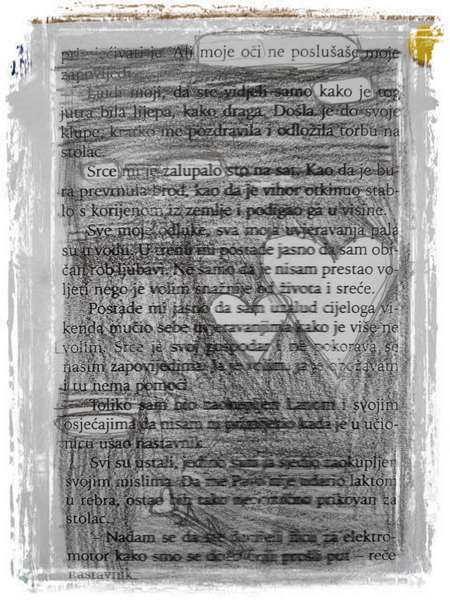 moje oči ne poslušaše moje
zapovjedi.
Ljudi moji, da ste vidjeli samo kako je tog
jutra bila lijepa, kako draga. Došla je do svoje
klupe, kratko me pozdravila i odložila torbu na
stolac.
Srce mi je zalupalo sto na sat. Kao da je bu-
ra prevrnula brod, kao da je vihor otkinuo stab-
lo s korijenom iz zemlje i podigao ga u visine.
Sve moje odluke, sva moja uvjeravanja pala
su u vodu. U trenu mi postade jasno da sam obi-
čan rob ljubavi. Ne samo da je nisam prestao vo-
ljeti nego je volim snažnije od života i sreće.
Postade mi jasno da sam uzalud cijeloga vi-
kenda mučio sebe uvjeravanjima kako je više ne
volim. Srce je svoj gospodar i ne pokorava se
našim zapovijedima.
i tu nema pomoći.
Toliko sam bio zaokupljen Lanom i svojim
osjećajima da nisam ni primijetio kada je u učio-
nicu ušao nastavnik.
Svi su ustali, jedino sam ja sjedio zaokupljen
svojim mislima. Da me Pavo nije udario laktom
u rebra, ostao bih tako prikovan za
stolac.
Nadam se da ste žicu za elektro-
motor kako smo se dogovorili prošli put – reče
nastavnik.